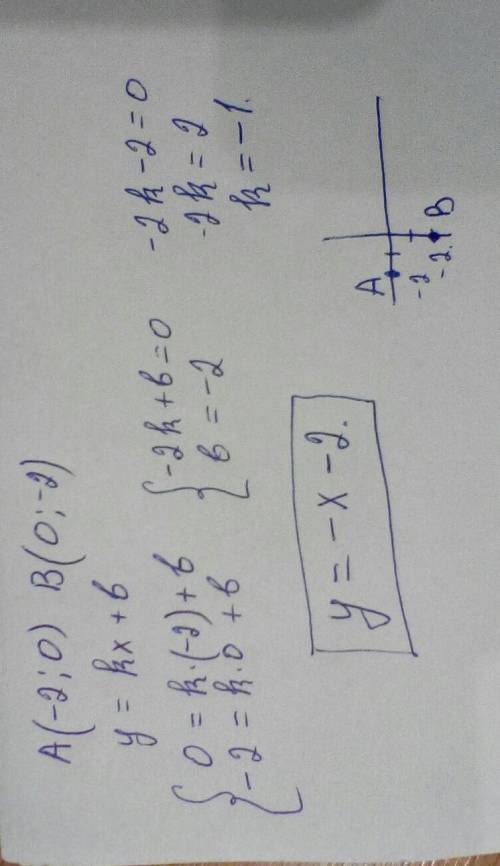 A(-2;0) B(0;-2)
y = kx + b
{ 0 = k·(-2) + b
-2 = k·0 + b
{ -2k + b = 0
b = -2
-2k - 2 = 0
-2k = 2
k = -1.
y = -x - 2.
A
-2
-2.
B